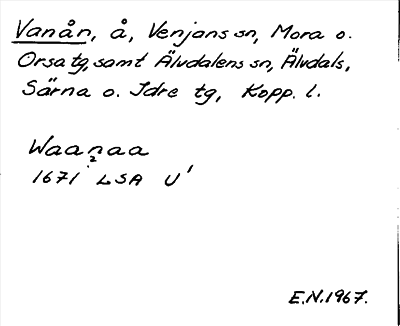 Vanån, å, Venjans sn, Mora o.
Orsa tg, samt Älvdalens sn, Älvdals,
Särna o. Idre tg, Kopp. l.
Waanaa
2
1671 LSA U'
E.N.1967.